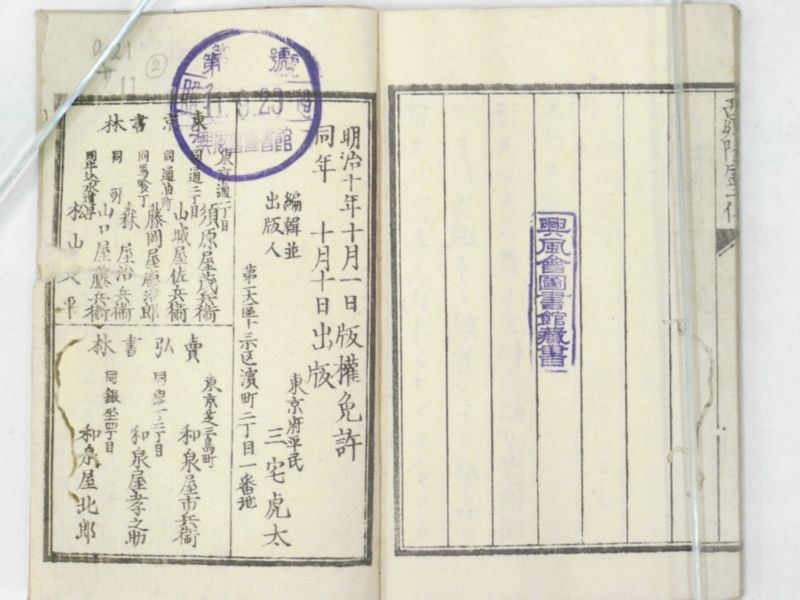 西郷隆盛
興風會圖書館藏書
明治十年十月一日版權免許
同年 十月十日出版
編輯並
出版人
東京府平民
三宅虎太
第一大區十三小区濱町二丁目一番地
東京書林
東京通一丁目
須原屋茂兵衞
同通二丁目
山城屋佐兵衞
同通油町
藤岡屋慶治郎
同馬喰丁
森屋治兵衞
同所
山口屋藤兵衞
同牛込水道丁
松山 平
賣弘書林
東京芝三島町
和泉屋市兵衞
二丁目
和泉屋孝之助
同銀坐四丁目
和泉屋北郎
第 號
昭 11.6.20
興風會圖書館
21
11
2